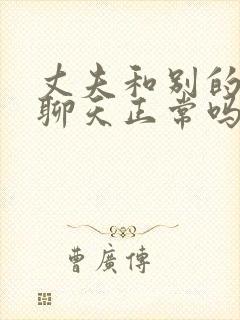 丈夫和别的
聊天正常吗
曹廣傳